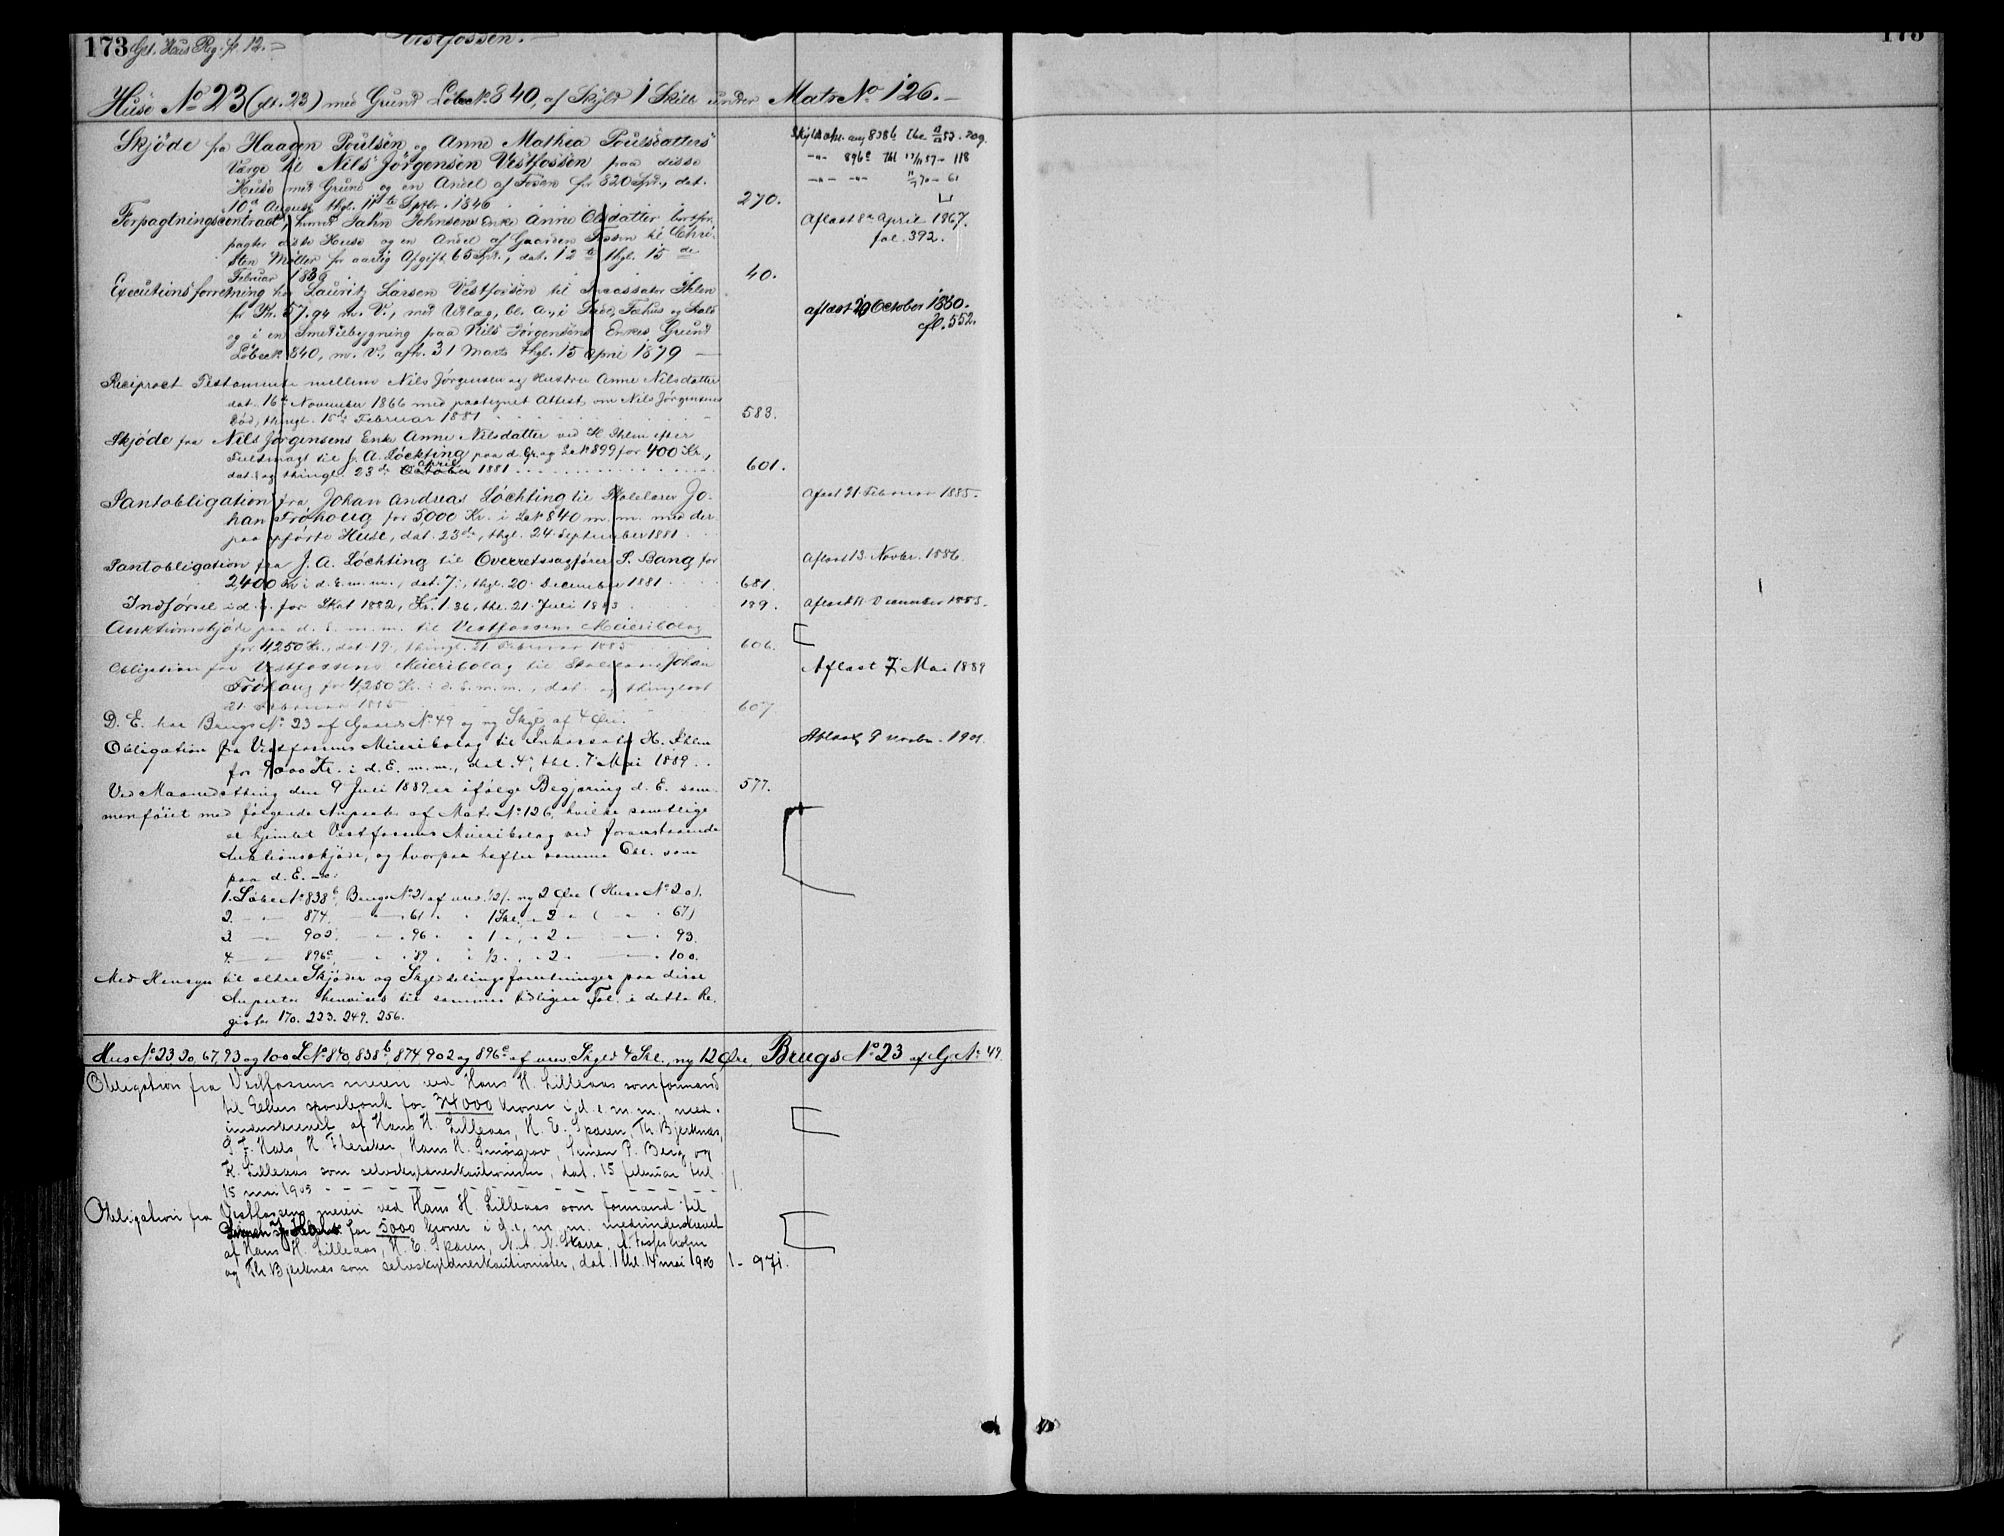 173 Gl. Huus Reg. fol. 12.
Vestfossen.
173
Huse No 23 (gl. 23) med Grund Löbe No 840, af Skyld 1 Skill under Matr No 126.
Skjöde fra Haagen Poulsen og Anne Mathea Poulsdatters
Værge til Nils Jörgensen Vestfossen paa disse
Huse med Grund og en Andel af Fosen for 820 Spd., dat.
10de August thgl. 11te Septbr. 1846 270.
Skyldskfor. ang 838b 209.
896c 118
61
Forpagtningscontract, hvorved Jahn Johnsens Enke Anne Olsdatter bortfor-
pagter disse Huse og en Andel af Gaarden Fossen til Chri-
sten Möller for aarlig Afgift 65 Spd., dat. 12te thgl. 15de
Februar 1839 40.
Aflæst 8de April 1867.
fol. 392.
Executionsforretning hos Lauritz Larsen Vestfossen til Incassator Ihlen
for Kr. 57.94 m. V., med Udlæg, bl. A., i Fæhus og Stald
og i en Smedebygning paa Nils Jörgensens Enkes Grund
Löbe No 840, m. V., afh. 31 Marts thgl. 15 April 1879
aflæst 20 October 1880.
fol. 552.
Reciproct Testamente mellem Nils Jörgensen og Hustru Anne Nilsdatter
dat. 16de November 1866 med paategnet Attest om Nils Jörgensens
Död, thingl. 15de Februar 1881 583.
Skjöde fra Nils Jörgensens Enke Anne Nilsdatter ved H. Ihlen efter
Fuldmagt til J. A. Löchting paa d. Gr. og L. No 899 for 400 Kr.,
dat. og thingl. 23de April 1881 601.
Pantobligation fra Johan Andreas Löchting til Skolelærer Jo-
han Fröhoug for 5000 Kr. i L. No 840 m. m. med der-
paa opförte Huse, dat. 23de, thgl. 24 September 1881.
Aflæst 21 Februar 1885.
Pantobligation fra J. A. Löchting til Overretssagförer S. Bang for
2,400 Kr. i d. E. m. m., dat. 7., thgl. 20. December 1881 681.
Aflæst 13. Novbr. 1886.
Indförsel i d. E. for Skat 1882, Kr. 1.36, thl. 21. Juli 1883 189.
Aflæst December 1883.
Auktionsskjöde paa d. E. m. m. til Vestfossens Meieribolag
for 4,250 Kr., dat. 19., thingl. 21 Februar 1885 606.
Obligation fra Vestfossens Meieribolag til Skolelærer Johan
Fröhaug for 4,250 Kr. i d. E. m. m., dat. og thinglæst
21. Februar 1885 607
Aflæst 7. Mai 1889
D. E. har Brugs No 23 af Gaards No 49 og ny Skyld af 4 Öre.
Obligation fra Vestfossens Meieribolag til Inkassator H. Ihlen
for 9000 Kr. i d. E. m. m., dat. 4., thl. 7 Mai 1889
Aflæst 9 novbr. 1901.
Ved Maanedsthing den 9 Juli 1889 er ifölge Begjæring d. E. sam- 577.
menföiet med fölgende Anparter af Matr. No 126, hvilke samtlige
er hjemlet Vestfossens Meieribolag ved foranstaaende
Auktionsskjöde, og hvorpaa hefter samme Obl. som
paa d. E.:
1. Löbe No 838b, Brugs No 21 af urev. 1/2 /. ny 2 Öre (Huse No 20).
2. — 874, — 61 " 1 Skl., " 2 " ( — " 67)
3. — 902. — 96 " 1 " " 2 — " 93.
4. — 896c, — 89 " 1/2 " " 2 — " 100.
Med Hensyn til eldre Skjöder og Skylddelingsforretninger paa disse
Anparter henvises til sammes tidligere Fol. i dette Re-
gister 170. 223. 249. 256.
Hus No 23, 20, 67, 93 og 100 L No 840, 838b, 874, 902 og 896c af urev. Skyld 4 Skl., ny 12 Öre, Brugs No 23 af G. No 49.
Obligation fra Vestfossens meieri ved Hans H. Lilleaas som formand
til Ekers sparebank for 34000 kroner i d. e. m. m. med-
underskrevet af Hans H. Lilleaas, H. E. Sparen, Th. Bjerknæs,
P. F. Hals, H. Flesaker, Hans H. Smörgrav, Simen P. Berg og
K. Lilleaas som selvskyldnerkautionister, dat. 15 februar thl.
15 mai 1905 1.
Obligation fra Vestfossens meieri ved Hans H. Lilleaas som formand til
for 5000 kroner i d. e. m. m. medunderskrevet
af Hans H. Lilleaas, H. E. Sparen, N. A. N. Skarra,
og Th. Bjerknæs som selvskyldnerkautionister, dat. 1 thl. 14 mai 1906 1 - 971.